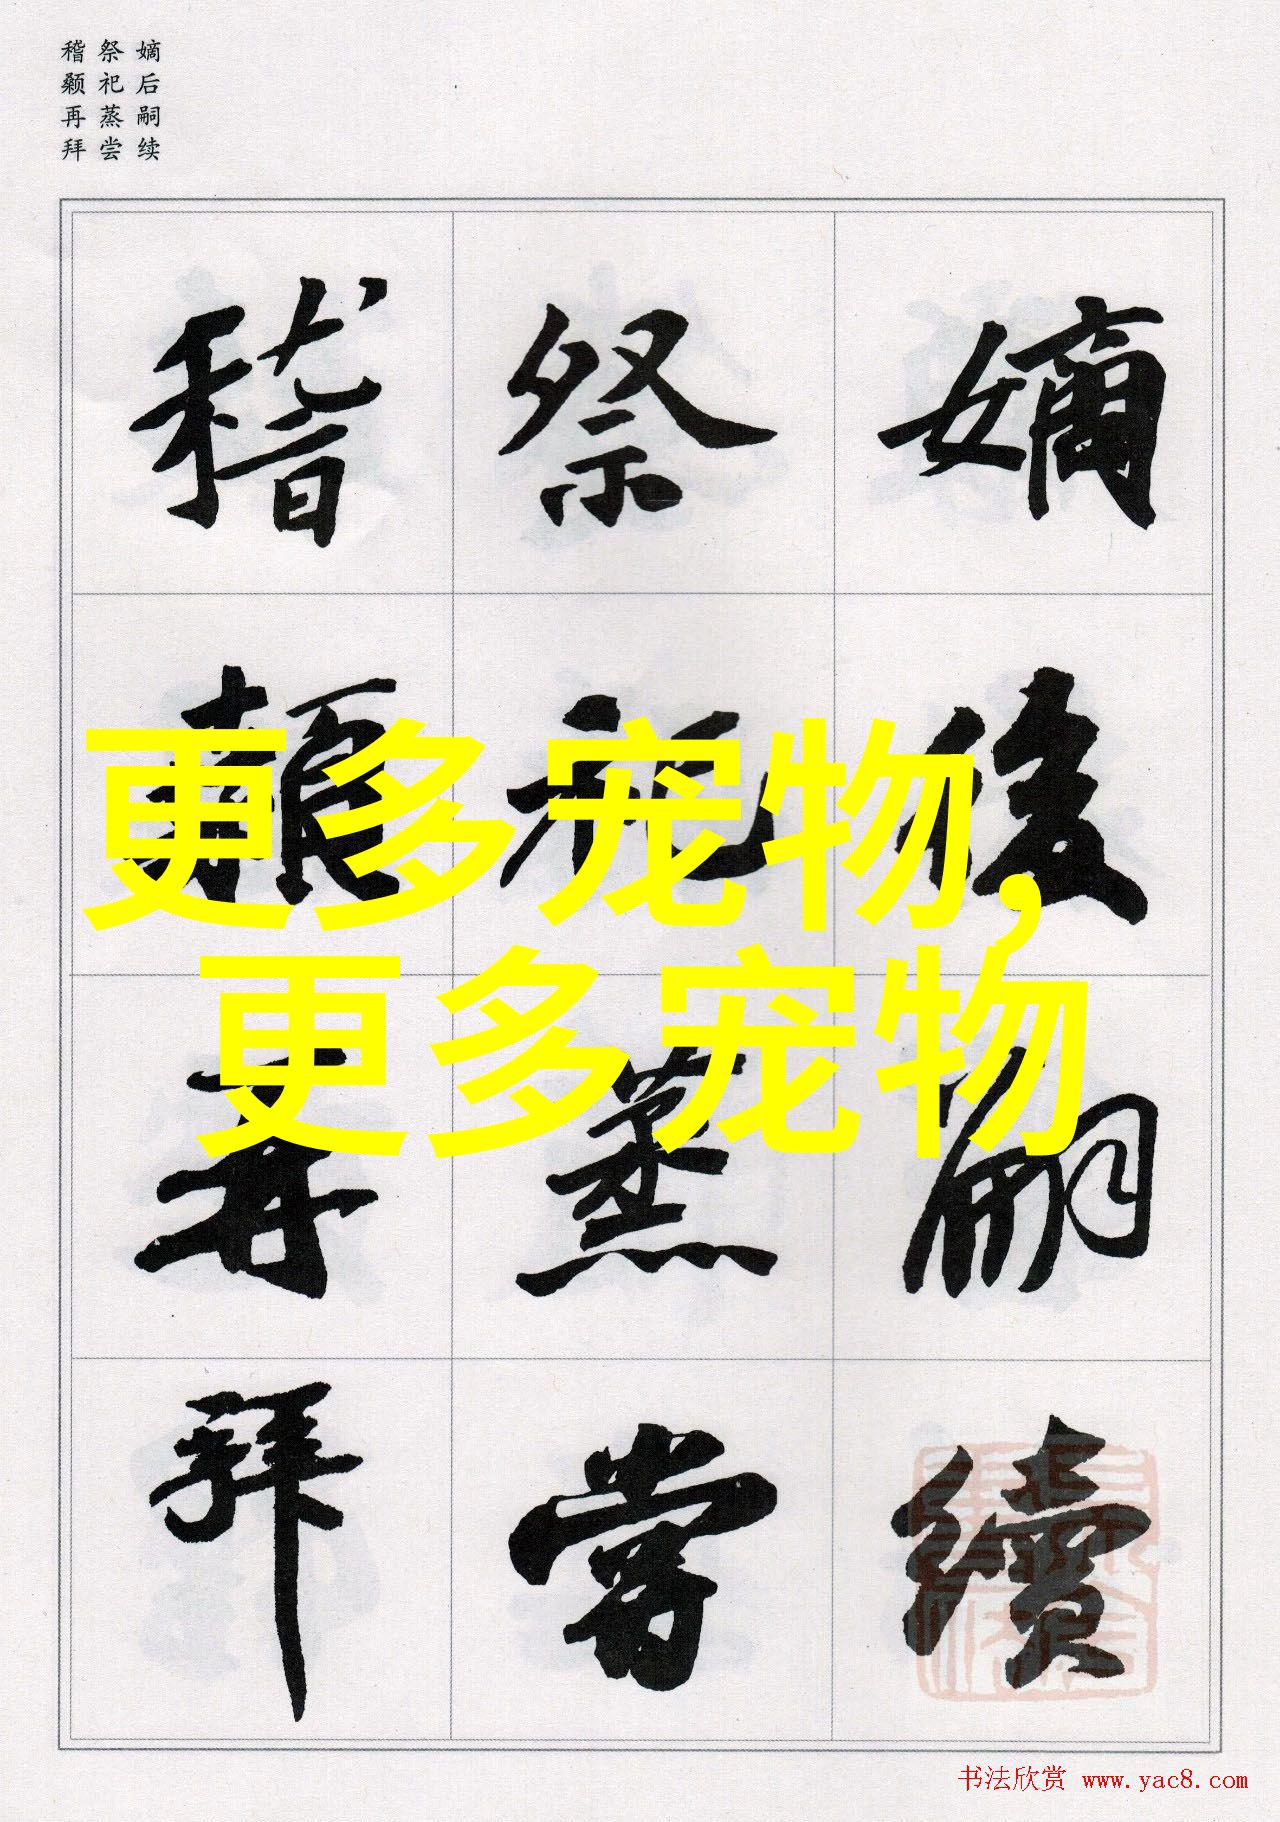 嫡后嗣续
祭祀蒸尝
稽颡再拜
嫡後嗣續
祭祀蒸嘗
稽顙再拜
更多宠物,
更多宠物
书法欣赏 www.yac8.com